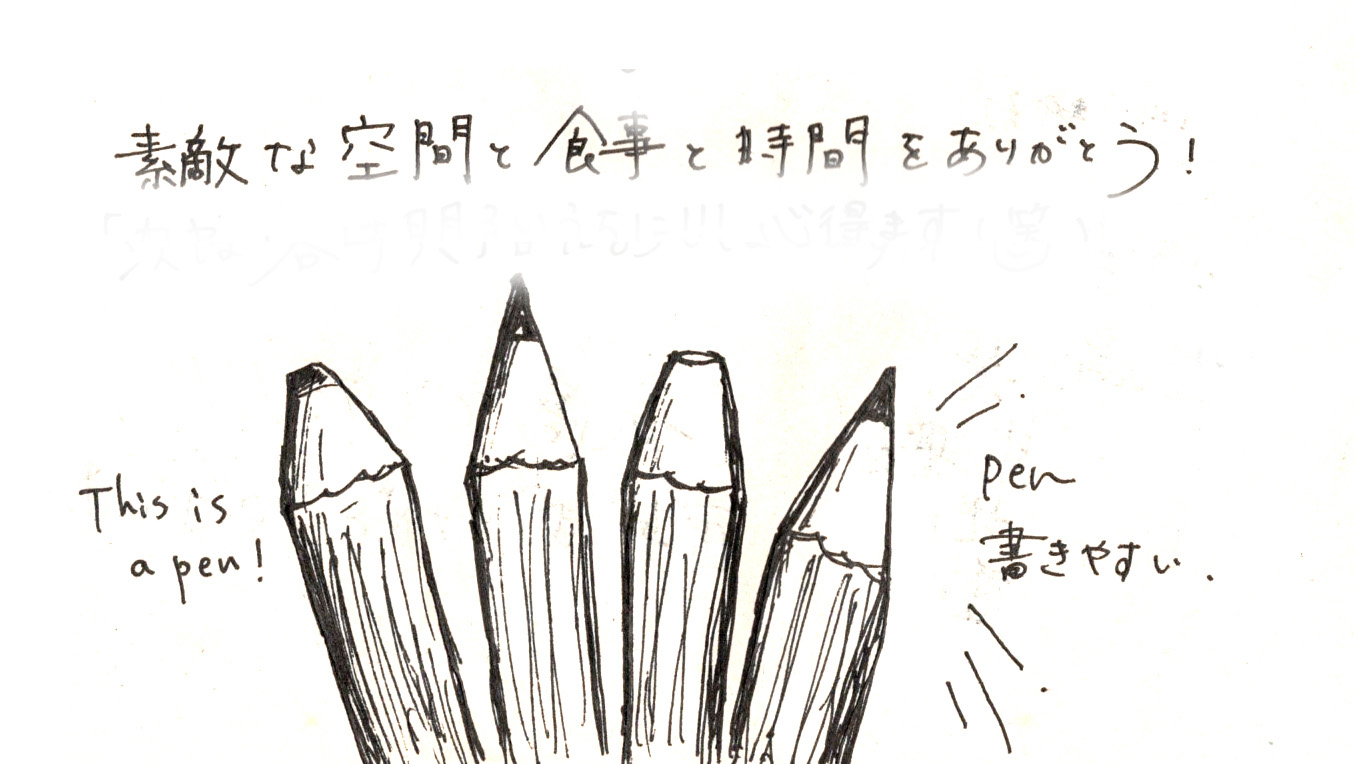 素敵な空間と食事と時間をありがとう!
This is
a pen!
pen
書きやすい.